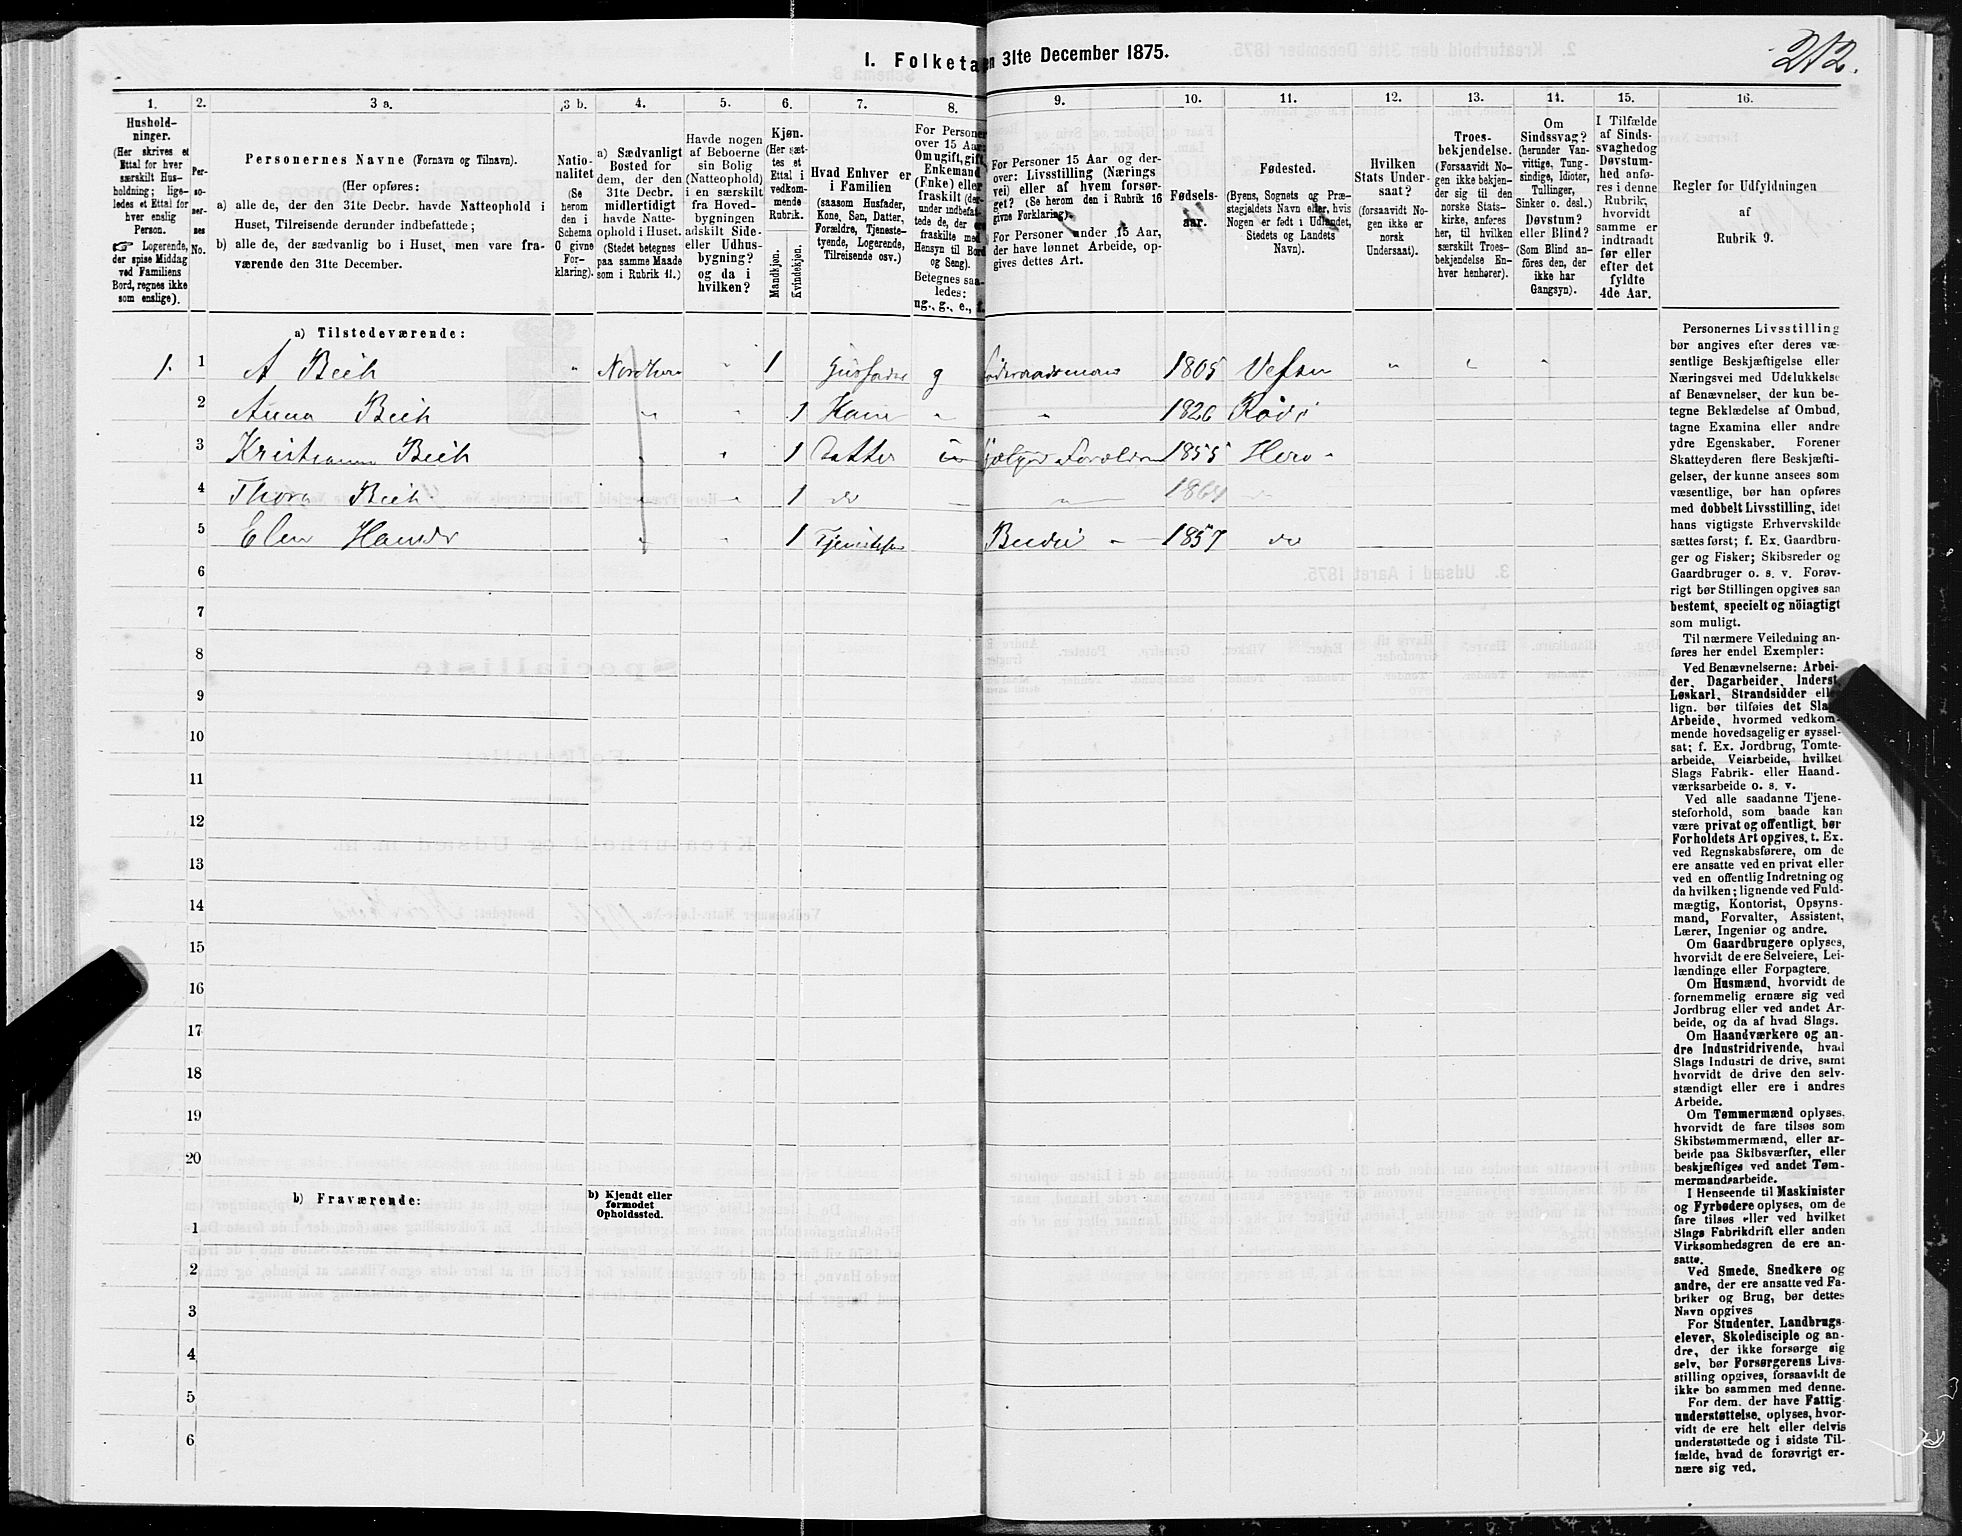 I. Folketa
n 31te December 1875.
212.
1.
2.
3 a.
3 b.
4.
5.
6.
7.
8.
9.
10.
11.
12.
13.
14.
15.
16.
Hushold-
ninger.
(Her skrives et
Ettal for hver
særskilt Hus-
holdning; lige-
ledes et Ettal for
hver enslig
Person.
☞ Logerende,
der spise Middag
ved Familiens
Bord, regnes ikke
som enslige).
Per-
so-
ner-
nes
No.
Personernes Navne (Fornavn og Tilnavn).
(Her opføres:
a) alle de, der den 31te Decbr. havde Natteophold i
Huset, Tilreisende derunder indbefattede;
b) alle de, der sædvanlig bo i Huset, men vare fra-
værende den 31te December.
Natio-
nalitet
(Se
herom
den i
Schema
C givne
For-
klaring).
a) Sædvanligt
Bosted for
dem, der den
31te Decbr.
midlertidigt
havde Natte-
ophold i Huset.
(Stedet betegnes
paa samme Maade
som i Rubrik 11.)
Havde nogen
af Beboerne
sin Bolig
(Natteophold)
i en særskilt
fra Hoved-
bygningen
adskilt Side-
eller Udhus-
bygning?
og da i
hvilken?
Kjøn.
(Her sæt-
tes et
Ettal i
vedkom-
mende
Rubrik.
Mandkjøn.
Kvindekjøn.
Hvad Enhver er
i Familien
(saasom Husfader,
Kone, Søn, Datter,
Forældre, Tjeneste-
tyende, Logerende,
Tilreisende osv.)
For Personer
over 15 Aar:
Om ugift, gift,
Enkemand
(Enke) eller
fraskilt (der-
under indbefat-
tede de, der ere
fraskilte med
Hensyn til Bord
og Seng).
Betegnes saa-
ledes:
ug., g., e., f.
For Personer 15 Aar og der-
over: Livsstilling (Nærings
vei) eller af hvem forsør-
get? (Se herom den i Rubrik 16
givne Forklaring).
For Personer under 15 Aar,
der have lønnet Arbeide, op-
gives dettes Art.
Fødsels-
aar.
Fødested.
(Byens, Sognets og Præ-
stegjeldets Navn eller, hvis
Nogen er født i Udlandet,
Stedets og Landets
Navn).
Hvilken
Stats Under-
saat?
(forsaavidt No-
gen ikke er
norsk
Undersaat).
Troes-
bekjendelse.
(Forsaavidt No-
gen ikke bekjen-
der sig til den
norske Stats-
kirke, anføres
her, til hvilken
særskilt Troes-
bekjendelse En-
hver henhører).
Om
Sindssvag?
(herunder Van-
vittige, Tung-
sindige, Idioter,
Tullinger,
Sinker o. desl.)
Døvstum?
eller Blind?
(Som Blind an-
føres den, der
ikke har
Gangsyn).
I Tilfælde
af Sinds-
svaghed og
Døvstum-
hed anfø-
res i denne
Rubrik,
hvorvidt
samme er
indtraadt
før eller
efter det
fyldte
4de Aar.
Regler for Udfyldningen
af
Rubrik 9.
a) Tilstedeværende:
1. 1 A Bech " 1 g 1805 Vefsn " " "
2 Anna Bech " " 1 Kone " " 1826 Rødø
3 Kristianna Bech " " 1 Datter 1855 Herø
4 Thora Bech 1 do " 1864 do
5 Elen Hansdr 1 1857 do
6
7
8
9
10
11
12
13
14
15
16
17
18
19
20
b) Fraværende:
b) Kjendt eller
formodet
Opholdssted.
1
2
3
4
5
6
Personernes Livsstilling
bør angives efter deres væ-
sentlige Beskjæftigelse eller
Næringsvei med Udelukkelse
af Benævnelser, der kun be-
tegne Beklædelse af Ombud,
tagne Examina eller andre
ydre Egenskaber. Forener
Skatteyderen flere Beskjæfti-
gelser, der kunne ansees som
væsentlige, bør han opføres
med dobbelt Livsstilling, idet
hans vigtigste Erhvervskilde
sættes først; f. Ex. Gaardbru-
ger og Fisker; Skibsreder og
Gaardbruger o. s. v. Forøv-
rigt bør Stillingen opgives saa
bestemt, specielt og nöiagtigt
som muligt.
Til nærmere Veiledning an-
føres her endel Exempler:
Ved Benævnelserne: Arbei-
der, Dagarbeider, Inderst,
Løskarl, Strandsidder eller
lign. bør tilføies det Slags
Arbeide, hvormed vedkom-
mende hovedsagelig er syssel-
sat; f. Ex. Jordbrug, Tomte-
arbeide, Veiarbeide, hvilket
Slags Fabrik- eller Haand-
værksarbeide o. s. v.
Ved alle saadanne Tjene-
steforhold, som baade kan
være privat og offentligt, bør
Forholdets Art opgives, t. Ex.
ved Regnskabsførere, om de
ere ansatte ved en privat eller
ved en offentlig Indretning og
da hvilken; lignende ved Fuld-
mægtig, Kontorist, Opsyns-
mand, Forvalter, Assistent,
Lærer, Ingeniør og andre.
Om Gaardbrugere oplyses,
hvorvidt de ere Selveiere, Lei-
lændinge eller Forpagtere.
Om Husmænd, hvorvidt de
fornemmelig ernære sig ved
Jordbrug eller ved andet Ar-
beide, og da af hvad Slags.
Om Haandværkere og an-
dre Industridrivende, hvad
Slags Industri de drive, samt
hvorvidt de drive den selv-
stændigt eller ere i andres
Arbeide.
Om Tømmermænd oplyses,
hvorvidt de fare tilsøs som
Skibstømmermænd, eller ar-
beide paa Skibsværfter, eller
beskjæftiges ved andet Tøm-
mermandsarbeide.
I Henseende til Maskinister
og Fyrbødere oplyses, om de
fare tilsøs eller ved hvilket
Slags Fabrikdrift eller anden
Virksomhedsgren de ere an-
satte.
Ved Smede, Snedkere og
andre, der ere ansatte ved Fa-
briker og Brug, bør dettes
Navn opgives
For Studenter, Landbrugs-
elever, Skoledisciple og an-
dre, der ikke forsørge sig
selv, bør Forsørgerens Livs-
stilling opgives, forsaavidt de
ikke bo sammen med denne.
For dem, der have Fattig-
understøttelse, oplyses, hvor-
vidt de ere helt eller delvis
understøttede og i sidste Til-
fælde, hvad de forøvrigt er-
nære sig ved.